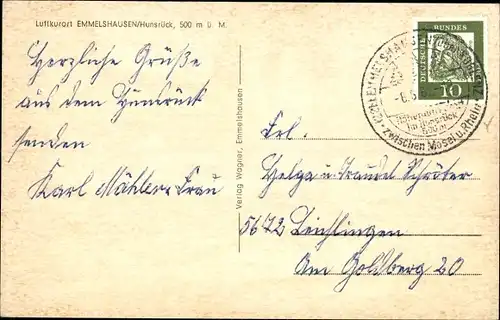 Luftkurort EMMELSHAUSEN/Hunsrück, 500 m ü. M.
Herzliche Grüße
aus dem Hunsrück
senden
Karl Mähler u. Frau
Verlag Wagner, Emmelshausen
DEUTSCHE BUNDESPOST
10
EMMELSHAUSEN
-6.
Höhenluftkurort
im Hunsrück
500 m
zwischen Mosel u. Rhein
Frl.
Helga u Traudel Schröter
5672 Leichlingen
Am Goldberg 20